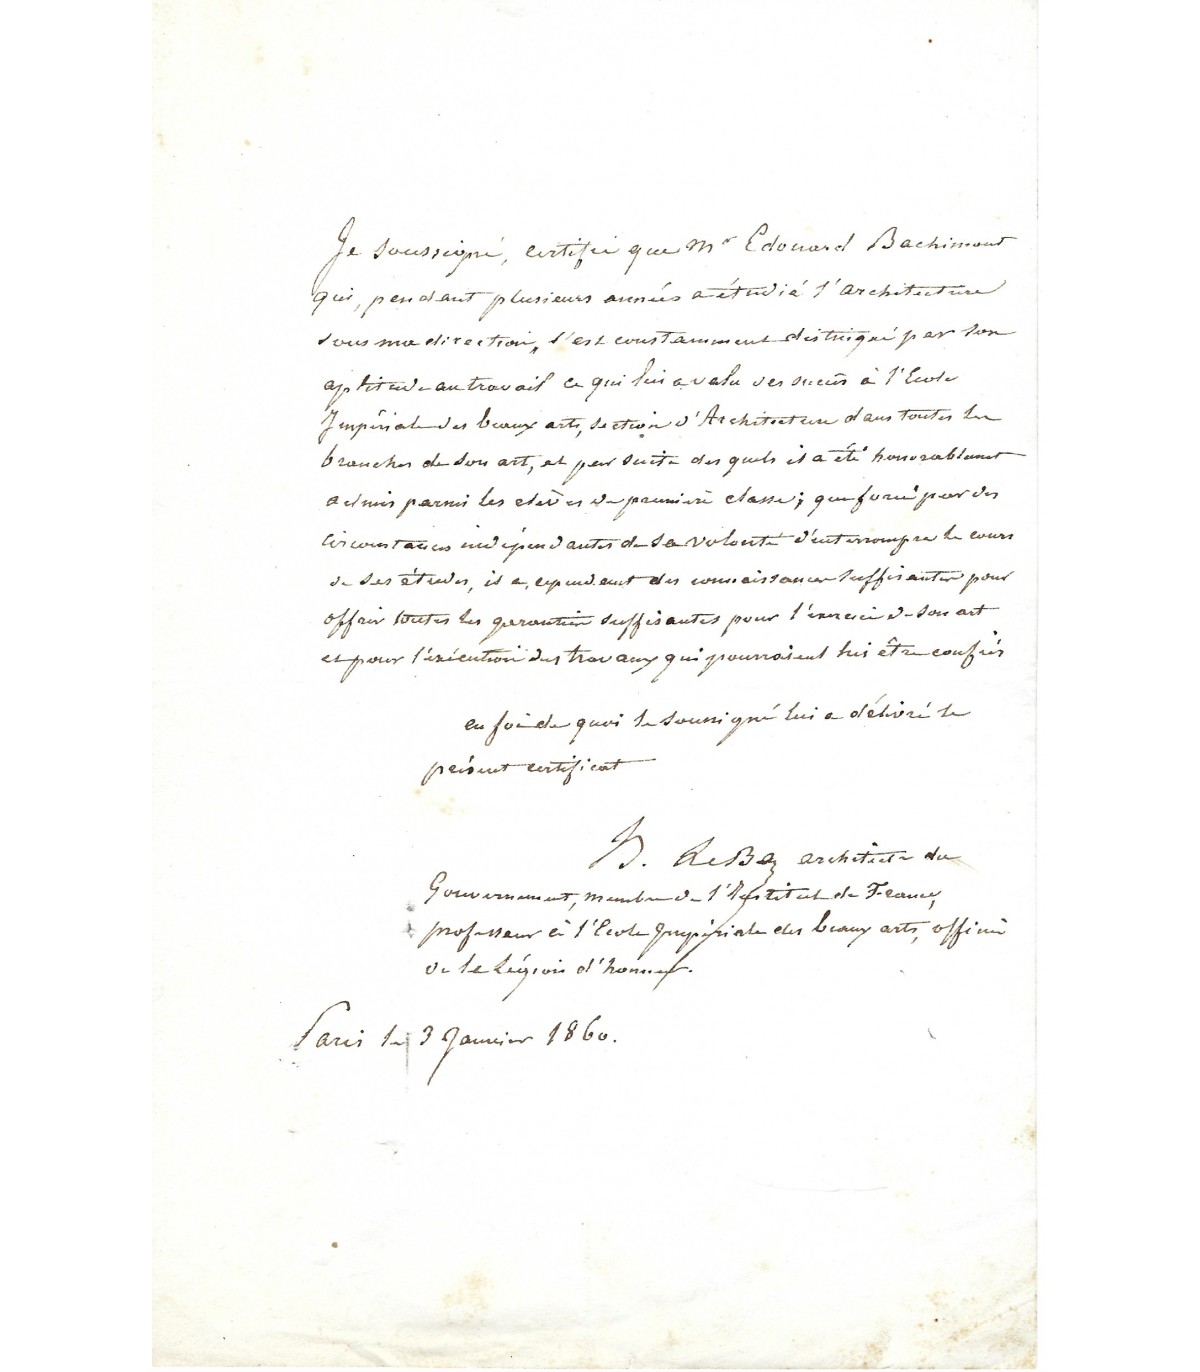 Je soussigné, certifie que Mr Edouard Bachimont
qui, pendant plusieurs années a étudié l'architecture
sous ma direction, s'est constamment distingué par son
aptitude au travail ce qui lui a valu des succès à l'Ecole
Impériale des beaux arts, section d'Architecture dans toutes les
branches de son art, et par suite des quels il a été honorablement
admis parmi les élèves de première classe; que forcé par des
circonstances indépendantes de sa volonté d'interrompre le cours
de ses études, il a, cependant des connaissances suffisantes pour
offrir toutes les garanties suffisantes pour l'exercice de son art
et pour l'exécution des travaux qui pourraient lui être confiés
en foi de quoi le soussigné lui a délivré le
présent certificat
H. LeBas architecte du
Gouvernement, membre de l'Institut de France,
professeur à l'Ecole Impériale des beaux arts, officier
de la Légion d'honneur.
Paris le 3 Janvier 1860.